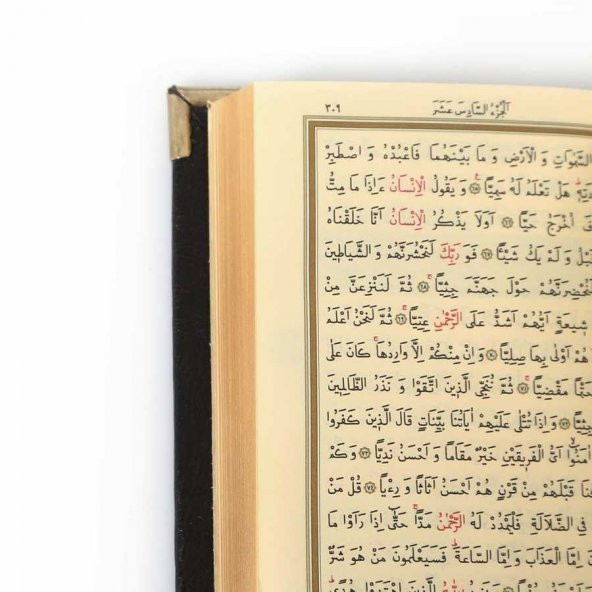 ٣٠٩
اَلْجُزْءُ السَّادِسَ عَشَرَ
السَّمٰوَاتِ وَ الْاَرْضِ وَ مَا بَيْنَهُمَا فَاعْبُدْهُ وَ اصْطَبِرْ
هَلْ تَعْلَمُ لَهُ سَمِيًّا ﴿٦٥﴾ وَ يَقُولُ الْاِنْسَانُ ءَاِذَا مَا مِتُّ
اُخْرَجُ حَيًّا ﴿٦٦﴾ اَوَلَا يَذْكُرُ الْاِنْسَانُ اَنَّا خَلَقْنَاهُ
وَ لَمْ يَكُ شَيْئًا ﴿٦٧﴾ فَوَ رَبِّكَ لَنَحْشُرَنَّهُمْ وَ الشَّيَاطٖينَ
لَنُحْضِرَنَّهُمْ حَوْلَ جَهَنَّمَ جِثِيًّا ﴿٦٨﴾ ثُمَّ لَنَنْزِعَنَّ مِنْ
شٖيعَةٍ اَيُّهُمْ اَشَدُّ عَلَى الرَّحْمٰنِ عِتِيًّا ﴿٦٩﴾ ثُمَّ لَنَحْنُ اَعْلَمُ
هُمْ اَوْلٰى بِهَا صِلِيًّا ﴿٧٠﴾ وَ اِنْ مِنْكُمْ اِلَّا وَارِدُهَا كَانَ عَلٰى
حَتْمًا مَقْضِيًّا ﴿٧١﴾ ثُمَّ نُنَجِّى الَّذٖينَ اتَّقَوْا وَ نَذَرُ الظَّالِمٖينَ
جِثِيًّا ﴿٧٢﴾ وَ اِذَا تُتْلٰى عَلَيْهِمْ اٰيَاتُنَا بَيِّنَاتٍ قَالَ الَّذٖينَ كَفَرُوا
اٰمَنُوا اَىُّ الْفَرٖيقَيْنِ خَيْرٌ مَقَامًا وَ اَحْسَنُ نَدِيًّا ﴿٧٣﴾ وَ كَمْ
قَبْلَهُمْ مِنْ قَرْنٍ هُمْ اَحْسَنُ اَثَاثًا وَ رِءْيًا ﴿٧٤﴾ قُلْ مَنْ
فِى الضَّلَالَةِ فَلْيَمْدُدْ لَهُ الرَّحْمٰنُ مَدًّا حَتّٰٓى اِذَا رَاَوْا مَا
اِمَّا الْعَذَابَ وَ اِمَّا السَّاعَةَ فَسَيَعْلَمُونَ مَنْ هُوَ شَرٌّ